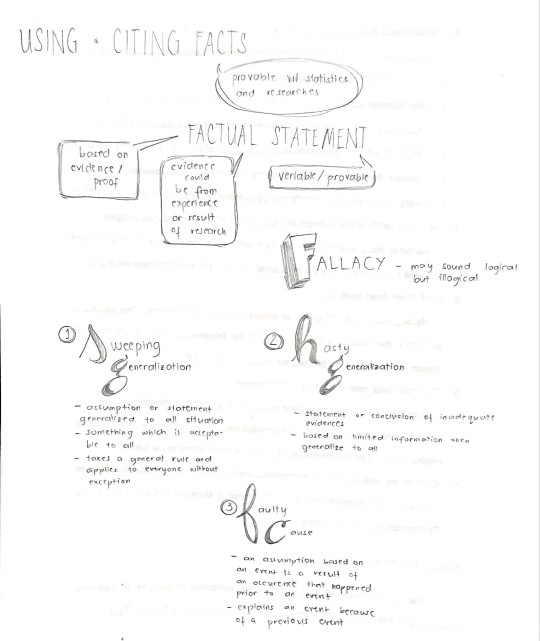 USING & CITING FACTS
provable w/ statistics
and researches
FACTUAL STATEMENT
based on
evidence /
proof
evidence
could
be from
experience
or result
of research
veriable / provable
FALLACY - may sound logical
but illogical
1 Sweeping
generalization
- assumption or statement
generalized to all situation
- something which is accepta-
ble to all
- takes a general rule and
applies to everyone without
exception
2 hasty
generalization
- statement or conclusion of inadequate
evidences
- based on limited information then
generalize to all
3 faulty
cause
- an assumption based on
an event is a result of
an occurence that happened
prior to an event
- explains an event because
of a previous event